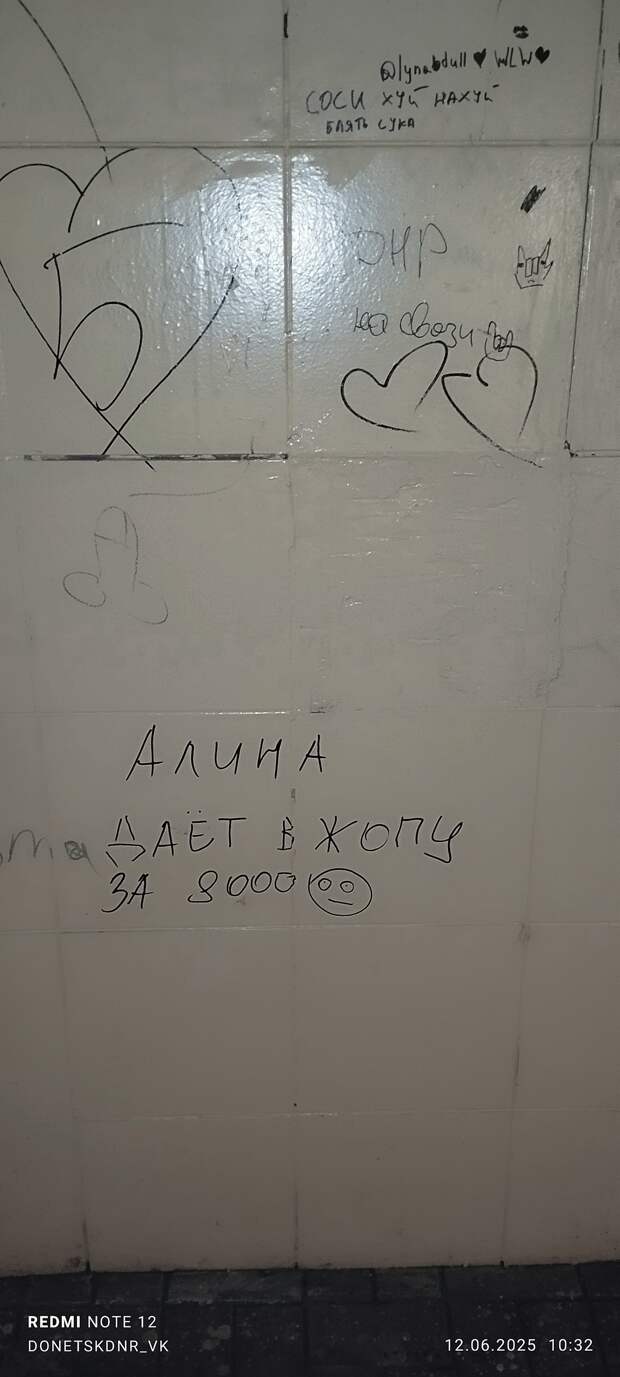 @lynabdull♥ WLW♥
СОСИ ХУЙ НАХУЙ
БЛЯТЬ СУКА
ДНР
на связи
Б
АЛИНА
ДАЁТ В ЖОПУ
ЗА 8000
REDMI NOTE 12
DONETSKDNR_VK
12.06.2025 10:32